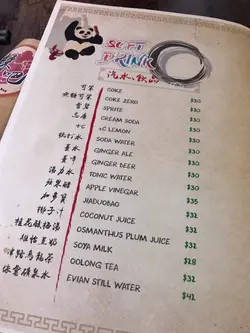 SOFT
DRINK
汽水、飲品
可樂 COKE $30
COKE ZERO $30
雪碧 SPRITE $30
忌廉 CREAM SODA $30
+C +C LEMON $30
梳打水 SODA WATER $30
薑水 GINGER ALE $30
薑啤 GINGER BEER $30
湯力水 TONIC WATER $30
蘋果醋 APPLE VINEGAR $35
加多寶 JIADUOBAO $32
椰子汁 COCONUT JUICE $32
桂花酸梅湯 OSMANTHUS PLUM JUICE $32
維他豆奶 SOYA MILK $28
烏龍茶 OOLONG TEA $32
依雲礦泉水 EVIAN STILL WATER $42